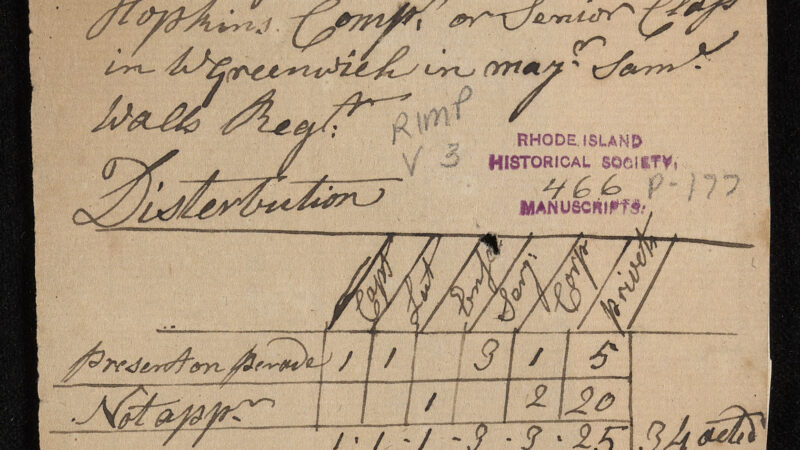 Hopkins Compy. or Senior Class
in WGreenwich in mayr. Saml.
Walls Regt.
RIMP
V 3
RHODE ISLAND
HISTORICAL SOCIETY.
466 P-177
MANUSCRIPTS.
Disterbution
Capt Lut Ensn Serj. Corp privets
present on perade 1 1 3 1 5
Not appr 1 2 20
1 . 1 . 1 - 3 . 3 . 25 34 acted